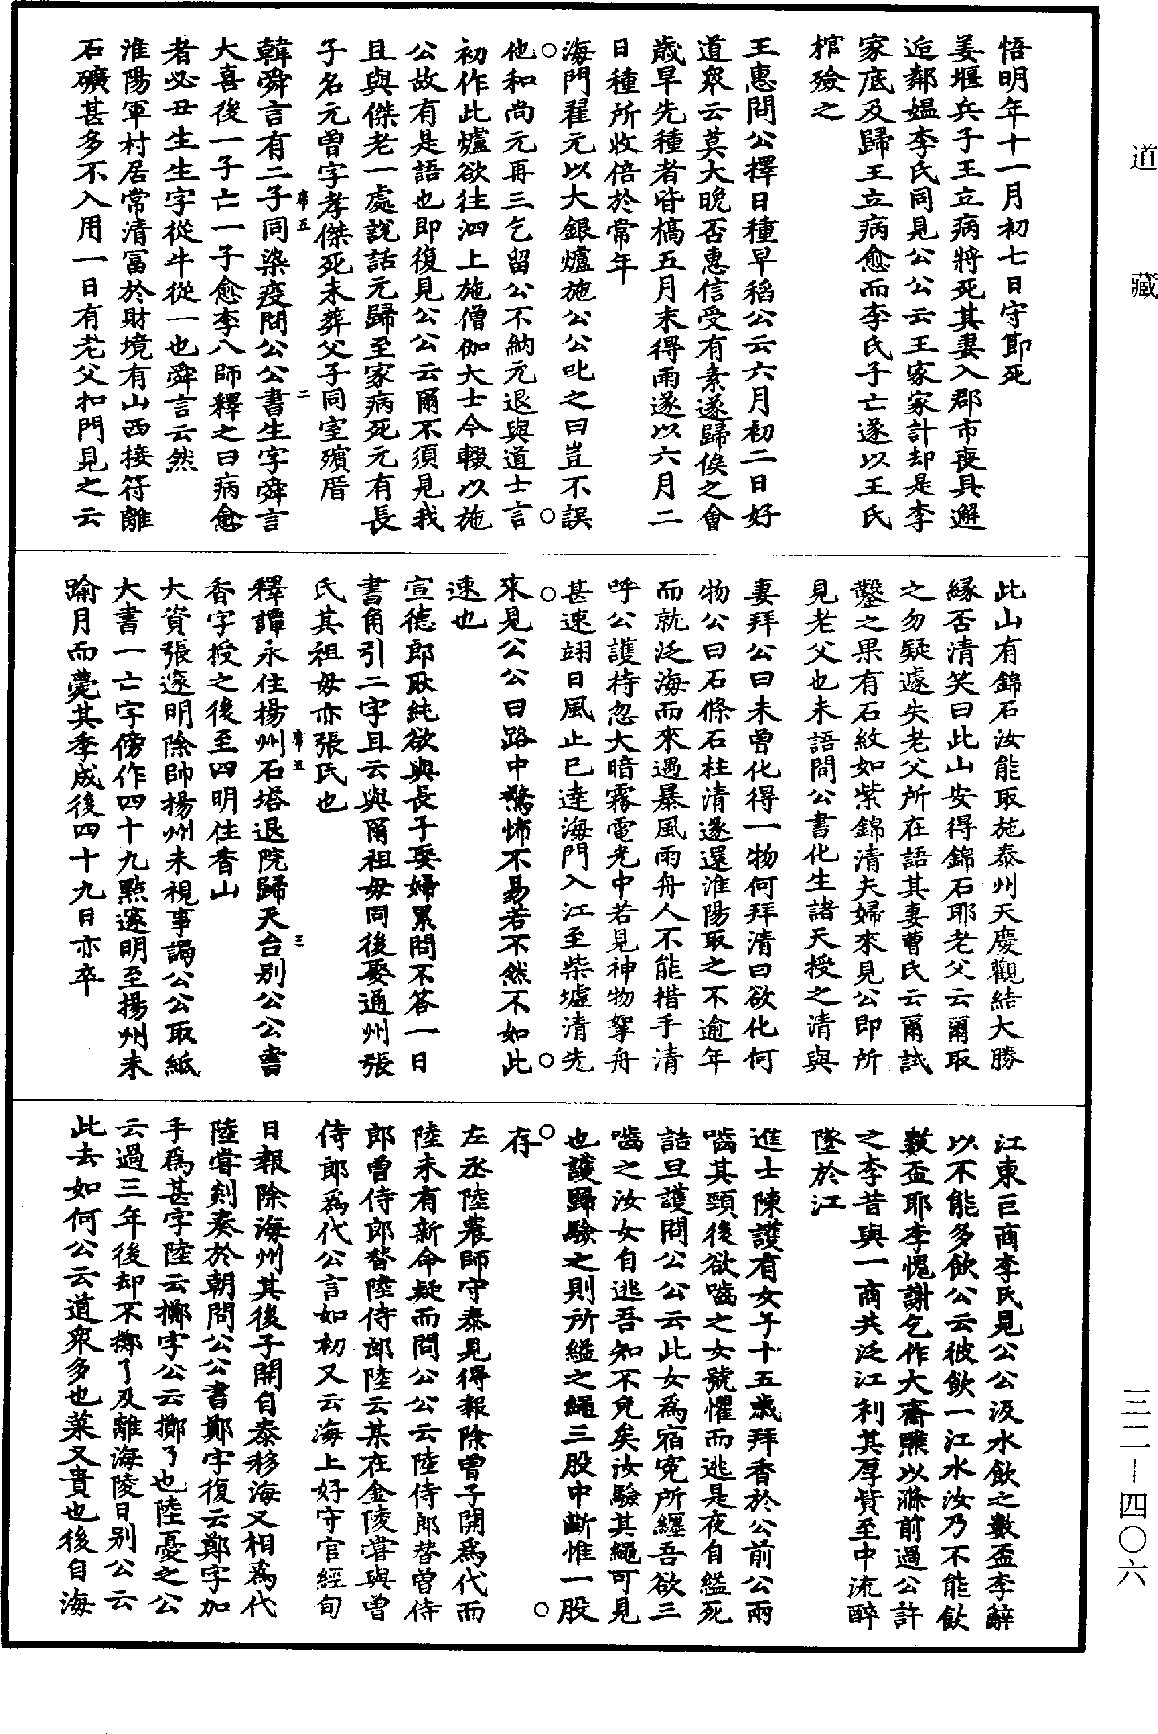 道藏
三二—四〇六
悟明年十一月初七日守節死
姜堰兵子王立病將死其妻入郡市喪具邂
逅鄰媼李氏同見公公云王家家計却是李
家底及歸王立病愈而李氏子亡遂以王氏
棺殮之
王惠問公擇日種早稻公云六月初二日好
道衆云莫大晚否惠信受有素遂歸俟之會
歲旱先種者皆槁五月末得雨遂以六月二
日種所收倍於常年
海門翟元以大銀爐施公公叱之曰豈不誤
他和尚元再三乞留公不納元退與道士言
初作此爐欲往泗上施僧伽大士今輟以施
公故有是語也即復見公公云爾不須見我
且與傑老一處説話元歸至家病死元有長
子名元曾字孝傑死未葬父子同室殯厝
韓舜言有二子同染疫問公公書生字舜言
席五
二
大喜後一子亡一子愈李八師釋之曰病愈
者必丑生生字從牛從一也舜言云然
淮陽軍村居常清富於財境有山西接符離
石礦甚多不入用一日有老父扣門見之云
此山有錦石汝能取施泰州天慶觀結大勝
緣否清笑曰此山安得錦石耶老父云爾取
之勿疑遽失老父所在語其妻曹氏云爾試
鑿之果有石紋如紫錦清夫婦來見公即所
見老父也未語問公書化生諸天授之清與
妻拜公曰未曾化得一物何拜清曰欲化何
物公曰石條石柱清遂還淮陽取之不逾年
而就泛海而來遇暴風雨舟人不能措手清
呼公護持忽大暗霧電光中若見神物挐舟
甚速翊日風止已達海門入江至柴墟清先
來見公公曰路中驚怖不易若不然不如此
速也
宣德郎耿純欲與長子娶婦累問不答一日
書角引二字且云與爾祖母同後娶通州張
氏其祖母亦張氏也
釋譚永住揚州石塔退院歸天台别公公書
席五
三
香字授之後至四明住香山
大資張邃明除帥揚州未視事謁公公取紙
大書一亡字傍作四十九點邃明至揚州未
踰月而薨其季成後四十九日亦卒
江東巨商李氏見公公汲水飲之數盃李辭
以不能多飲公云彼飲一江水汝乃不能飲
數盃耶李愧謝乞作大齋醮以滌前過公許
之李昔與一商共泛江利其厚貲至中流醉
墜於江
進士陳護有女子十五歲拜香於公前公兩
嚙其頸後欲嚙之女號懼而逃是夜自縊死
詰旦護問公公云此女為宿寃所纏吾欲三
嚙之汝女自逃吾知不免矣汝驗其繩可見
也護歸驗之則所縊之繩三股中斷惟一股
存
左丞陸農師守泰見得報除曾子開為代而
陸未有新命疑而問公公云陸侍郎替曾侍
郎曾侍郎替陸侍郎陸云某在金陵嘗與曾
侍郎為代公言如初又云海上好守官經旬
日報除海州其後子開自泰移海又相為代
陸嘗刻奏於朝問公公書鄭字復云鄭字加
手爲甚字陸云擲字公云擲了也陸憂之公
云過三年後却不擲了及離海陵日别公云
此去如何公云道衆多也菜又貴也後自海